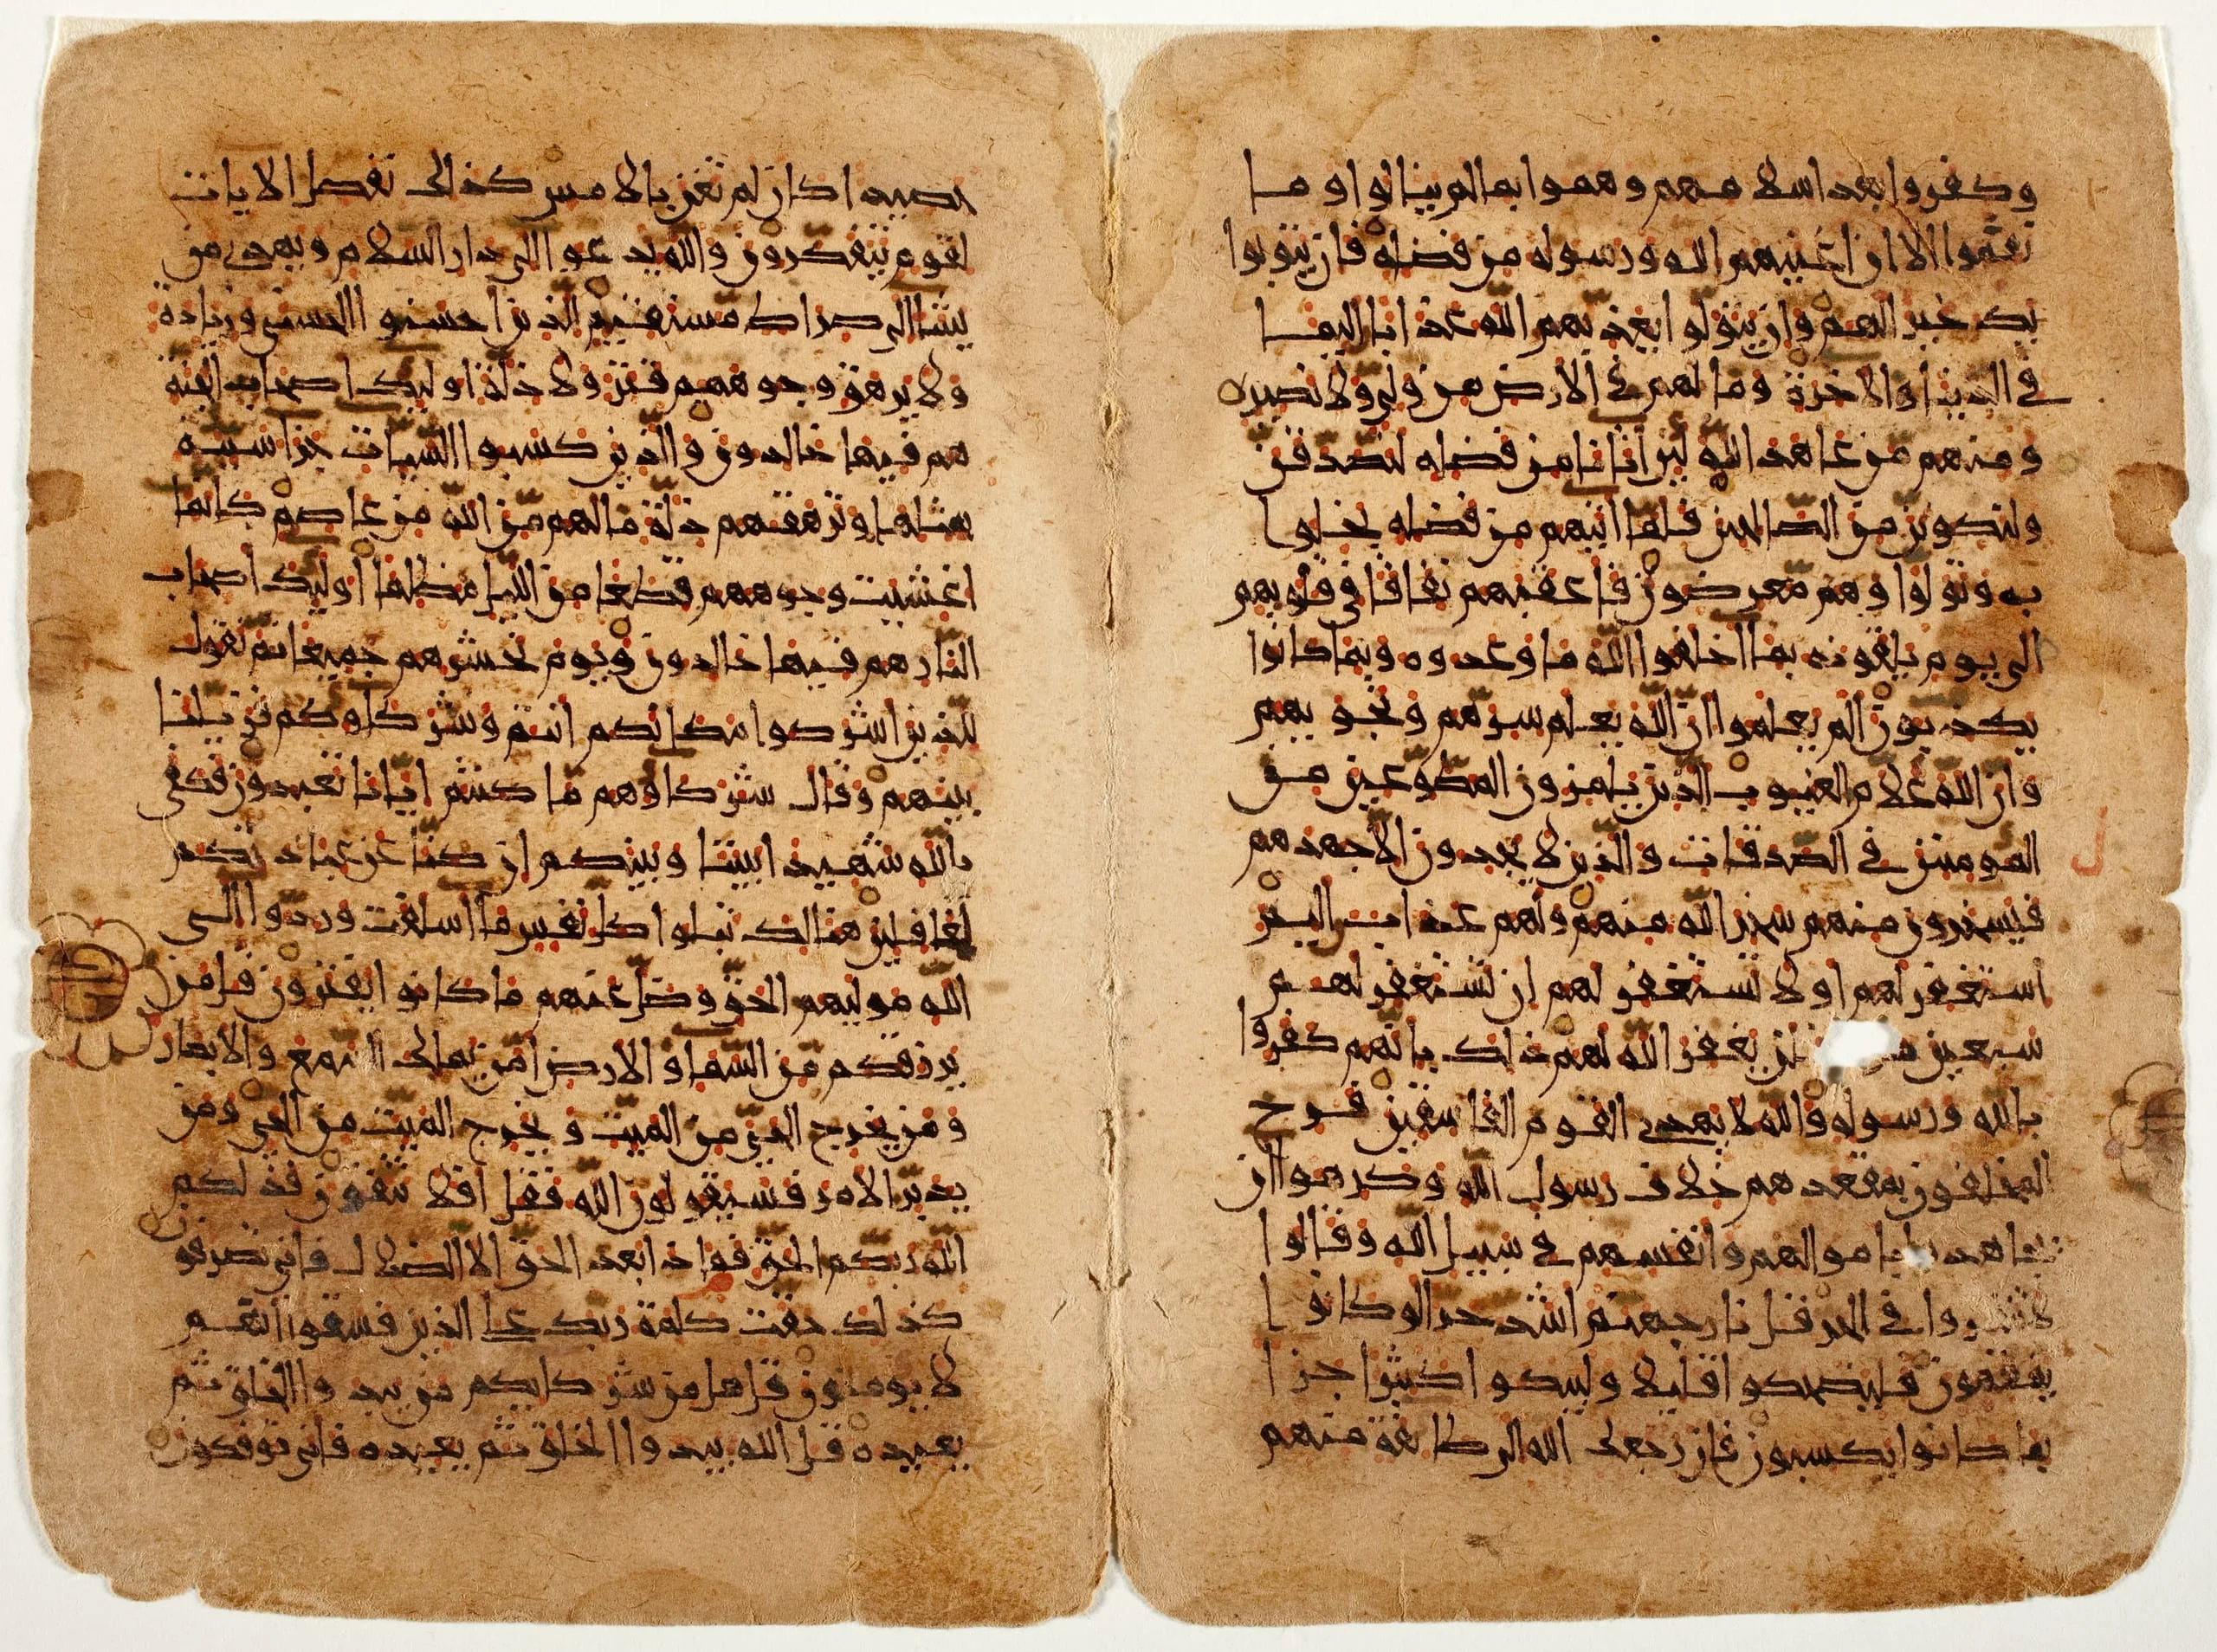 وكفروا بعد اسلامهم وهموا بما لم ينالوا وما
نقموا الا ان اغنيهم الله ورسوله من فضله فان يتوبوا
يك خيرا لهم وان يتولوا يعذبهم الله عذابا اليما
في الدنيا والاخرة وما لهم في الارض من ولي ولا نصير
ومنهم من عاهد الله لين اتانا من فضله لنصدقن
ولنكونن من الصالحين فلما اتيهم من فضله بخلوا
به وتولوا وهم معرضون فاعقبهم نفاقا في قلوبهم
الى يوم يلقونه بما اخلفوا الله ما وعدوه وبما كانوا
يكذبون الم يعلموا ان الله يعلم سرهم ونجويهم
وان الله علام الغيوب الذين يلمزون المطوعين من
المومنين في الصدقات والذين لا يجدون الا جهدهم
فيسخرون منهم سخر الله منهم ولهم عذاب اليم
استغفر لهم او لا تستغفر لهم ان تستغفر لهم
سبعين فلن يغفر الله لهم ذلك بانهم كفروا
بالله ورسوله والله لا يهدي القوم الفاسقين فرح
المخلفون بمقعدهم خلاف رسول الله وكرهوا ان
يجاهدوا باموالهم وانفسهم في سبيل الله وقالوا
لا تنفروا في الحر قل نار جهنم اشد حرا لو كانوا
يفقهون فليضحكوا قليلا وليبكوا كثيرا جزا
بما كانوا يكسبون فان رجعك الله الى طايفة منهم
حصيدا كان لم تغن بالامس كذلك نفصل الايات
لقوم يتفكرون والله يدعوا الى دار السلام ويهدي من
يشا الى صراط مستقيم للذين احسنوا الحسنى وزيادة
ولا يرهق وجوههم قتر ولا ذلة اوليك اصحاب الجنة
هم فيها خالدون والذين كسبوا السيات جزا سيية
بمثلها وترهقهم ذلة ما لهم من الله من عاصم كانما
اغشيت وجوههم قطعا من الليل مظلما اوليك اصحاب
النار هم فيها خالدون ويوم نحشرهم جميعا ثم نقول
للذين اشركوا مكانكم انتم وشركاوكم فزيلنا
بينهم وقال شركاوهم ما كنتم ايانا تعبدون فكفى
بالله شهيدا بيننا وبينكم ان كنا عن عبادتكم
لغافلين هنالك تبلوا كل نفس ما اسلفت وردوا الى
الله موليهم الحق وضل عنهم ما كانوا يفترون قل من
يرزقكم من السما والارض امن يملك السمع والابصار
ومن يخرج الحي من الميت ويخرج الميت من الحي ومن
يدبر الامر فسيقولون الله فقل افلا تتقون فذلكم
الله ربكم الحق فماذا بعد الحق الا الضلال فانى تصرفون
كذلك حقت كلمة ربك على الذين فسقوا انهم
لا يومنون قل هل من شركايكم من يبدوا الخلق ثم
يعيده قل الله يبدوا الخلق ثم يعيده فانى توفكون